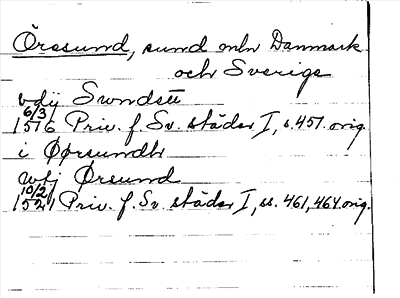 Öresund, sund mln Danmark
och Sverige
vdij Swndett
6/3
1516 Priv. f. Sv. städer I, s. 451. orig.
i Øørsundh
wtj Ørsund
10/2
1521 Priv. f. Sv. städer I, ss. 461, 464. orig.